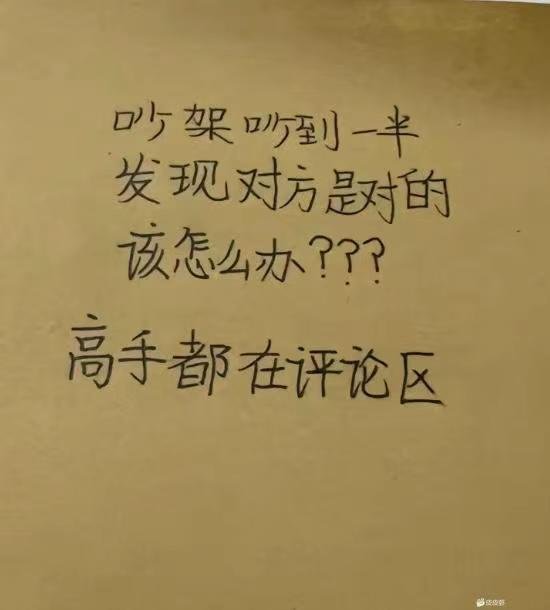 吵架吵到一半
发现对方是对的
该怎么办???
高手都在评论区
皮皮虾